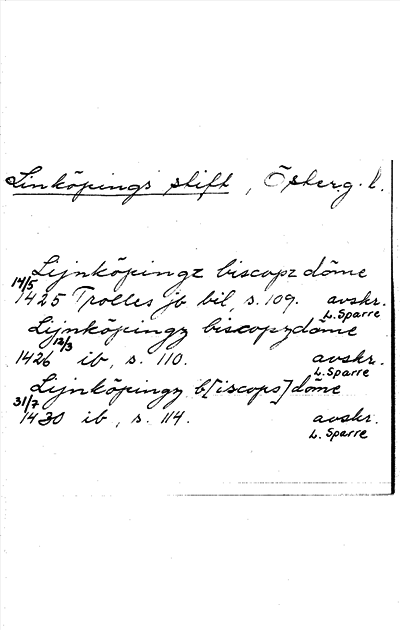 Linköpings stift, Österg. l.
Lijnköpingz biscopz döme
14/5
1425 Trolles jb bil, s. 109. avskr.
L. Sparre
Lijnköpingz biscopzdöme
12/3
1426 ib, s. 110. avskr.
L. Sparre
Lijnköpingz b[iscops]döme
31/7
1430 ib, s. 114. avskr.
L. Sparre